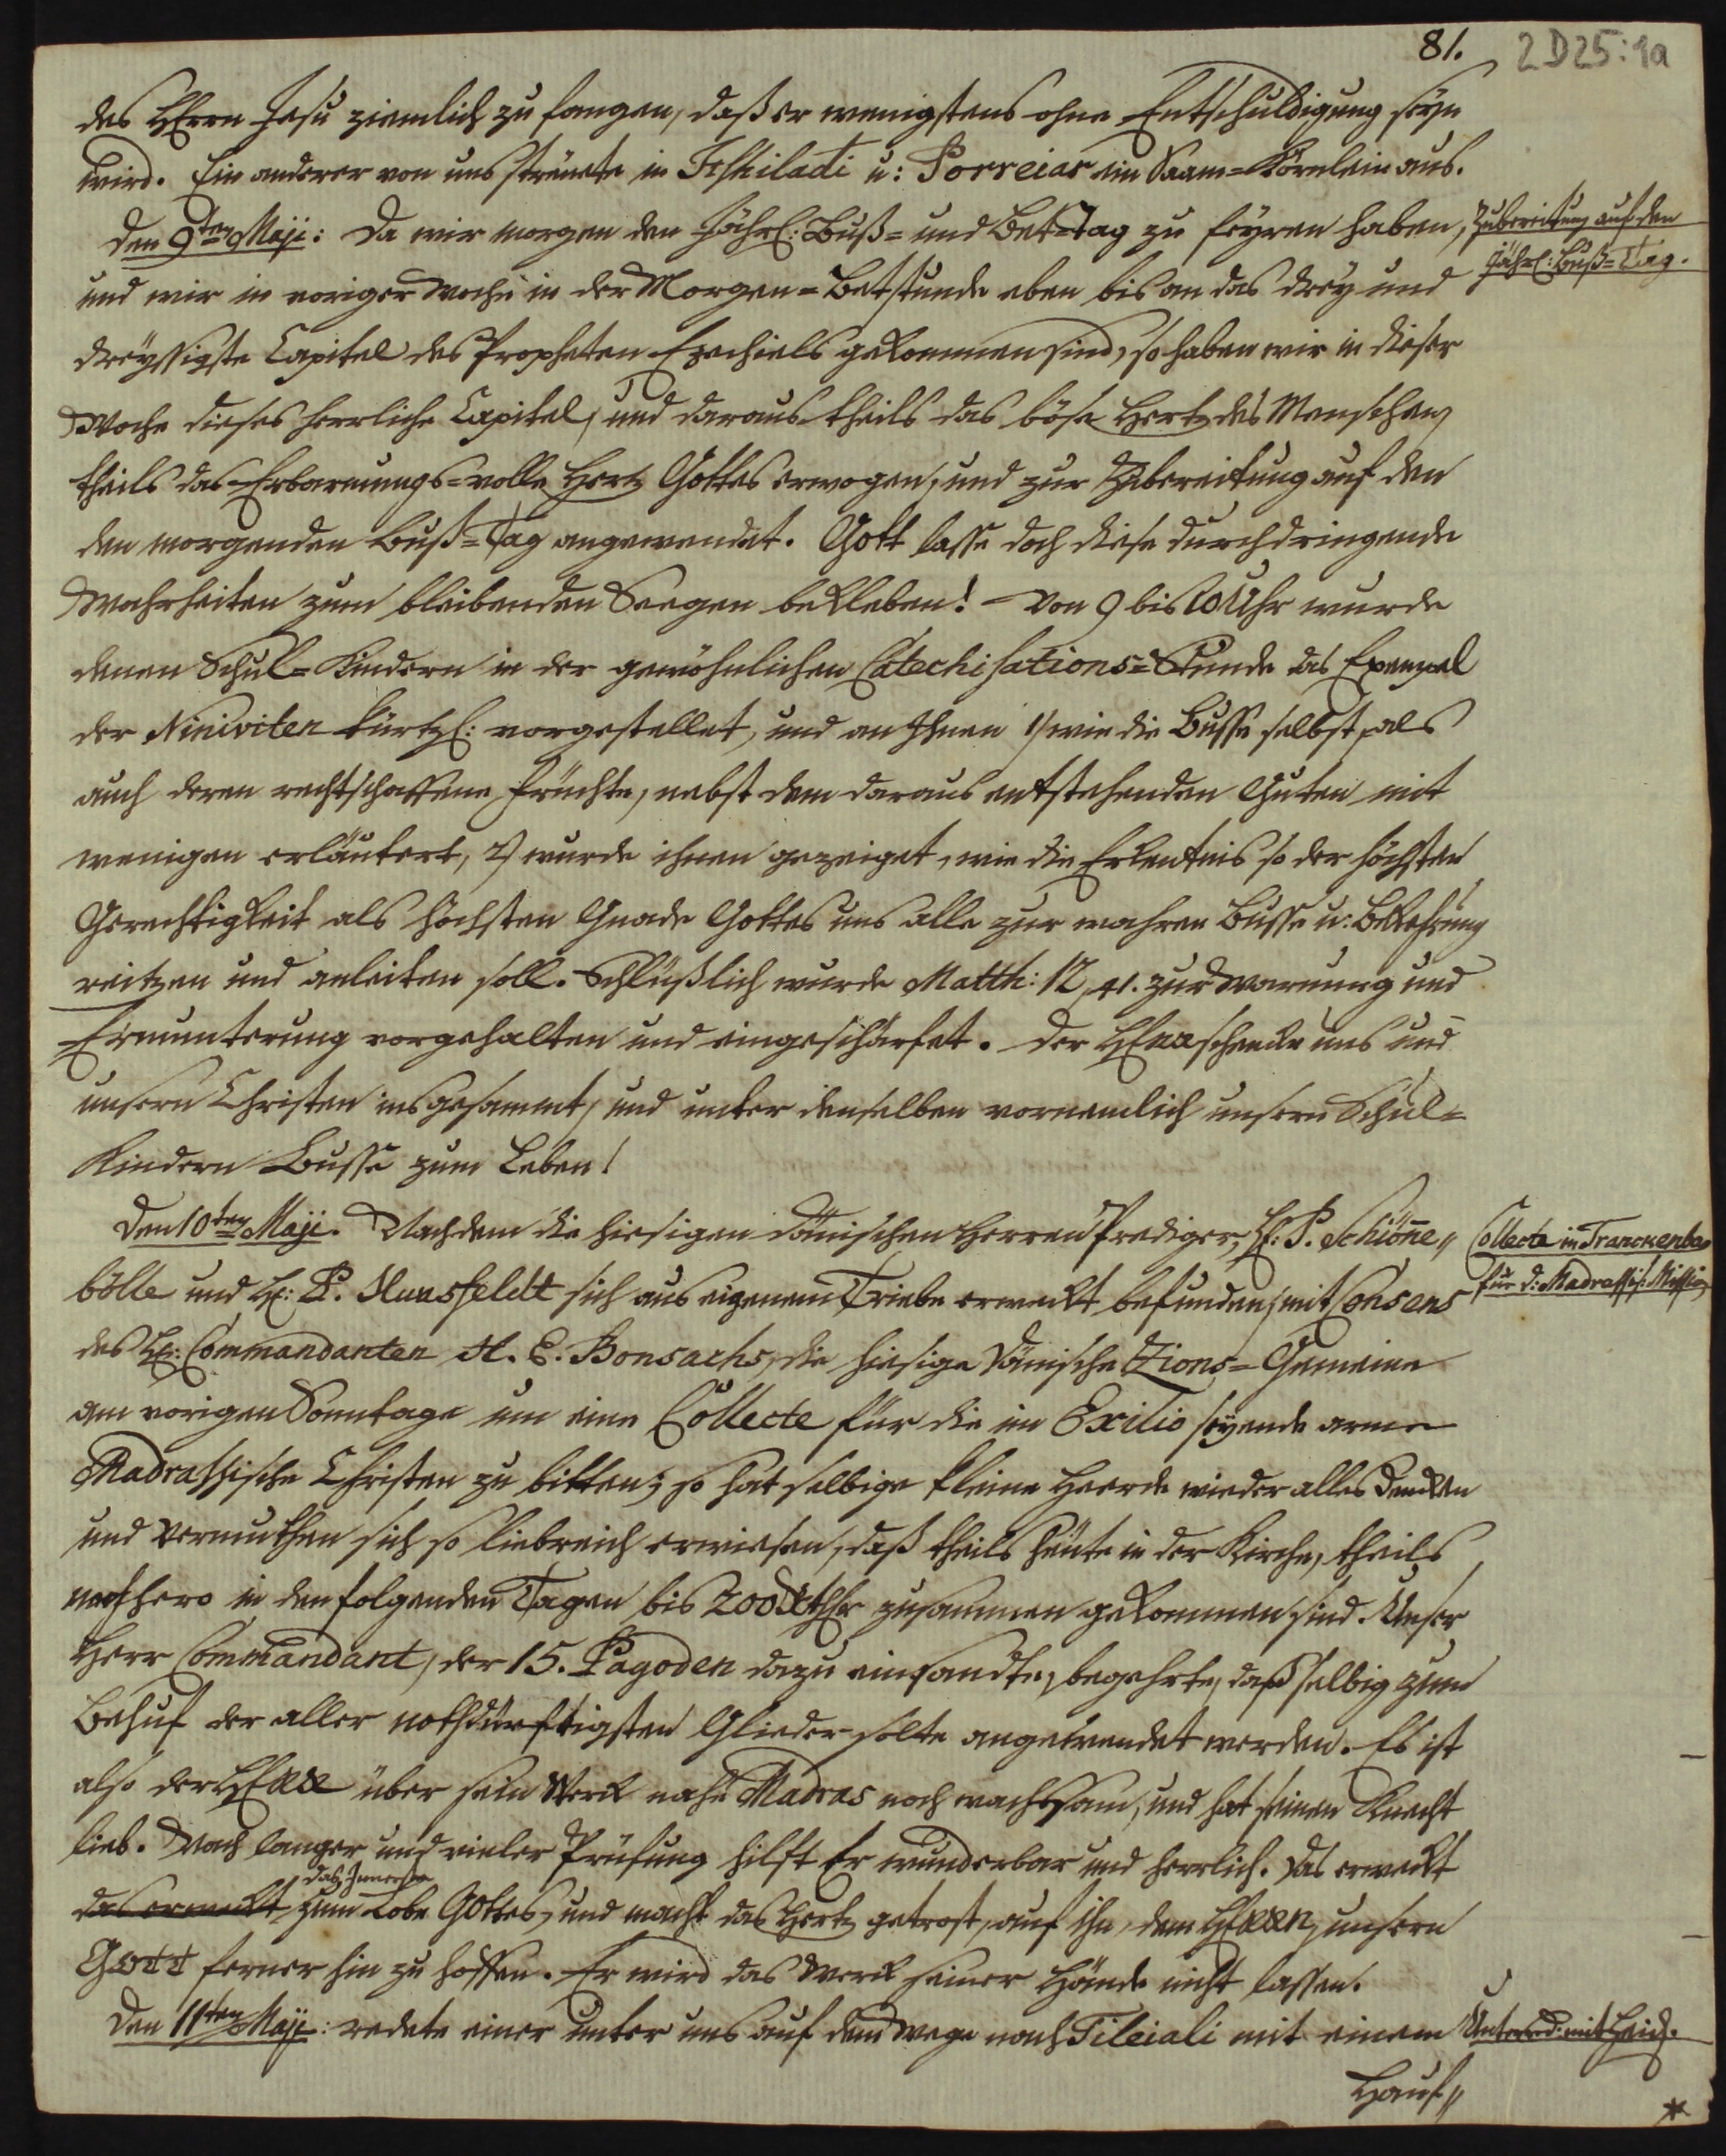 81. 2 D25:1a
des HErrn Jesu ziemlich zu fangen, daß er wenigstens ohne Entschuldigung seyn
wird. Ein anderer von uns streuete in Itshiladi u: Porreiar ein Saam=Körnlein aus.
Den 9ten Maji: Da wir morgen den Jährl: Buß= und Bet=Tag zu feyren haben,
Zubereitung auf den
Jährl: Buß=Tag.
und wir in voriger Woche in der Morgen=Betstunde eben bis an das drey und
dreyssigste Capitel des Propheten Ezechiels gekommen sind, so haben wir in dieser
Woche dieses herrliche Capitel, und daraus theils das böse Hertz des Menschen,
theils das Erbarmungs=volle Hertz Gottes erwogen, und zur Zubereitung auf den
den morgenden Buß=Tag angewendet. Gott lasse doch diese durchdringende
Wahrheiten zum bleibenden Seegen bekleben! – Von 9 bis 10 Uhr wurde
denen Schul=Kindern in der gewöhnlichen Catechisations=Stunde das Exempel
der Niniviten kürtzl: vorgestellet, und an Ihnen 1) wie die Busse selbst, als
auch deren rechtschaffene Früchte, nebst dem daraus entstehenden Guten mit
wenigen erläutert, 2) wurde ihnen gezeiget, wie die Erkentnis so der höchsten
Gerechtigkeit als höchsten Gnade Gottes uns alle zur wahren Busse u: Bekehrung
reitzen und anleiten soll. Schlüßlich wurde Matth: 12, 41. zur Warnung und
Ermunterung vorgehalten und eingeschärfet. Der HErr schencke uns und
unsern Christen ins gesammt, und unter denselben vornemlich unsern Schul=
Kindern Busse zum Leben!
Den 10ten Maji. Nachdem die hiesigen Dänischen Herren Prediger, H: P. Schiönne„
Collecte in Tranckenbar
für d: Madrassis: Mission
bölle und H: P. Hunsfeldt sich aus eigenem Triebe erweckt befunden, mit Consens
des H: Commandanten H. E. Bonsachs, die hiesige Dänische Zions=Gemeine
am vorigen Sonntage um eine Collecte für die im Exilio seyende arme
Madrassische Christen zu bitten; so hat selbige kleine Heerde wieder alles Dencken
und Vermuthen sich so liebreich erwiesen, daß theils heute in der Kirche, theils
nachhero in den folgenden Tagen bis 200 Rthlr zusammen gekommen sind. Unser
Herr Commandant, der 15. Pagoden dazu einsandte, begehrte, daß selbig zum
Behuf der aller nothdürftigsten Glieder solte angewendet werden. Es ist
also der HErr über sein Werck nahe Madras noch wachsam, und hat seinen Knecht
lieb. Nach langer und vieler Prüfung hilft Er wunderbar und herrlich. Das erweckt
das Innerste
das erweckt zum Lobe Gottes, und macht das Hertz getrost, auf ihn, dem HErrn, unsern
Gott ferner hin zu hoffen. Er wird das Werck seiner Hände nicht lassen.
Den 11ten Maji: redete einer unter uns auf dem Wege nach Tileiali mit einem
Unterred: mit Heid.
Hauf„